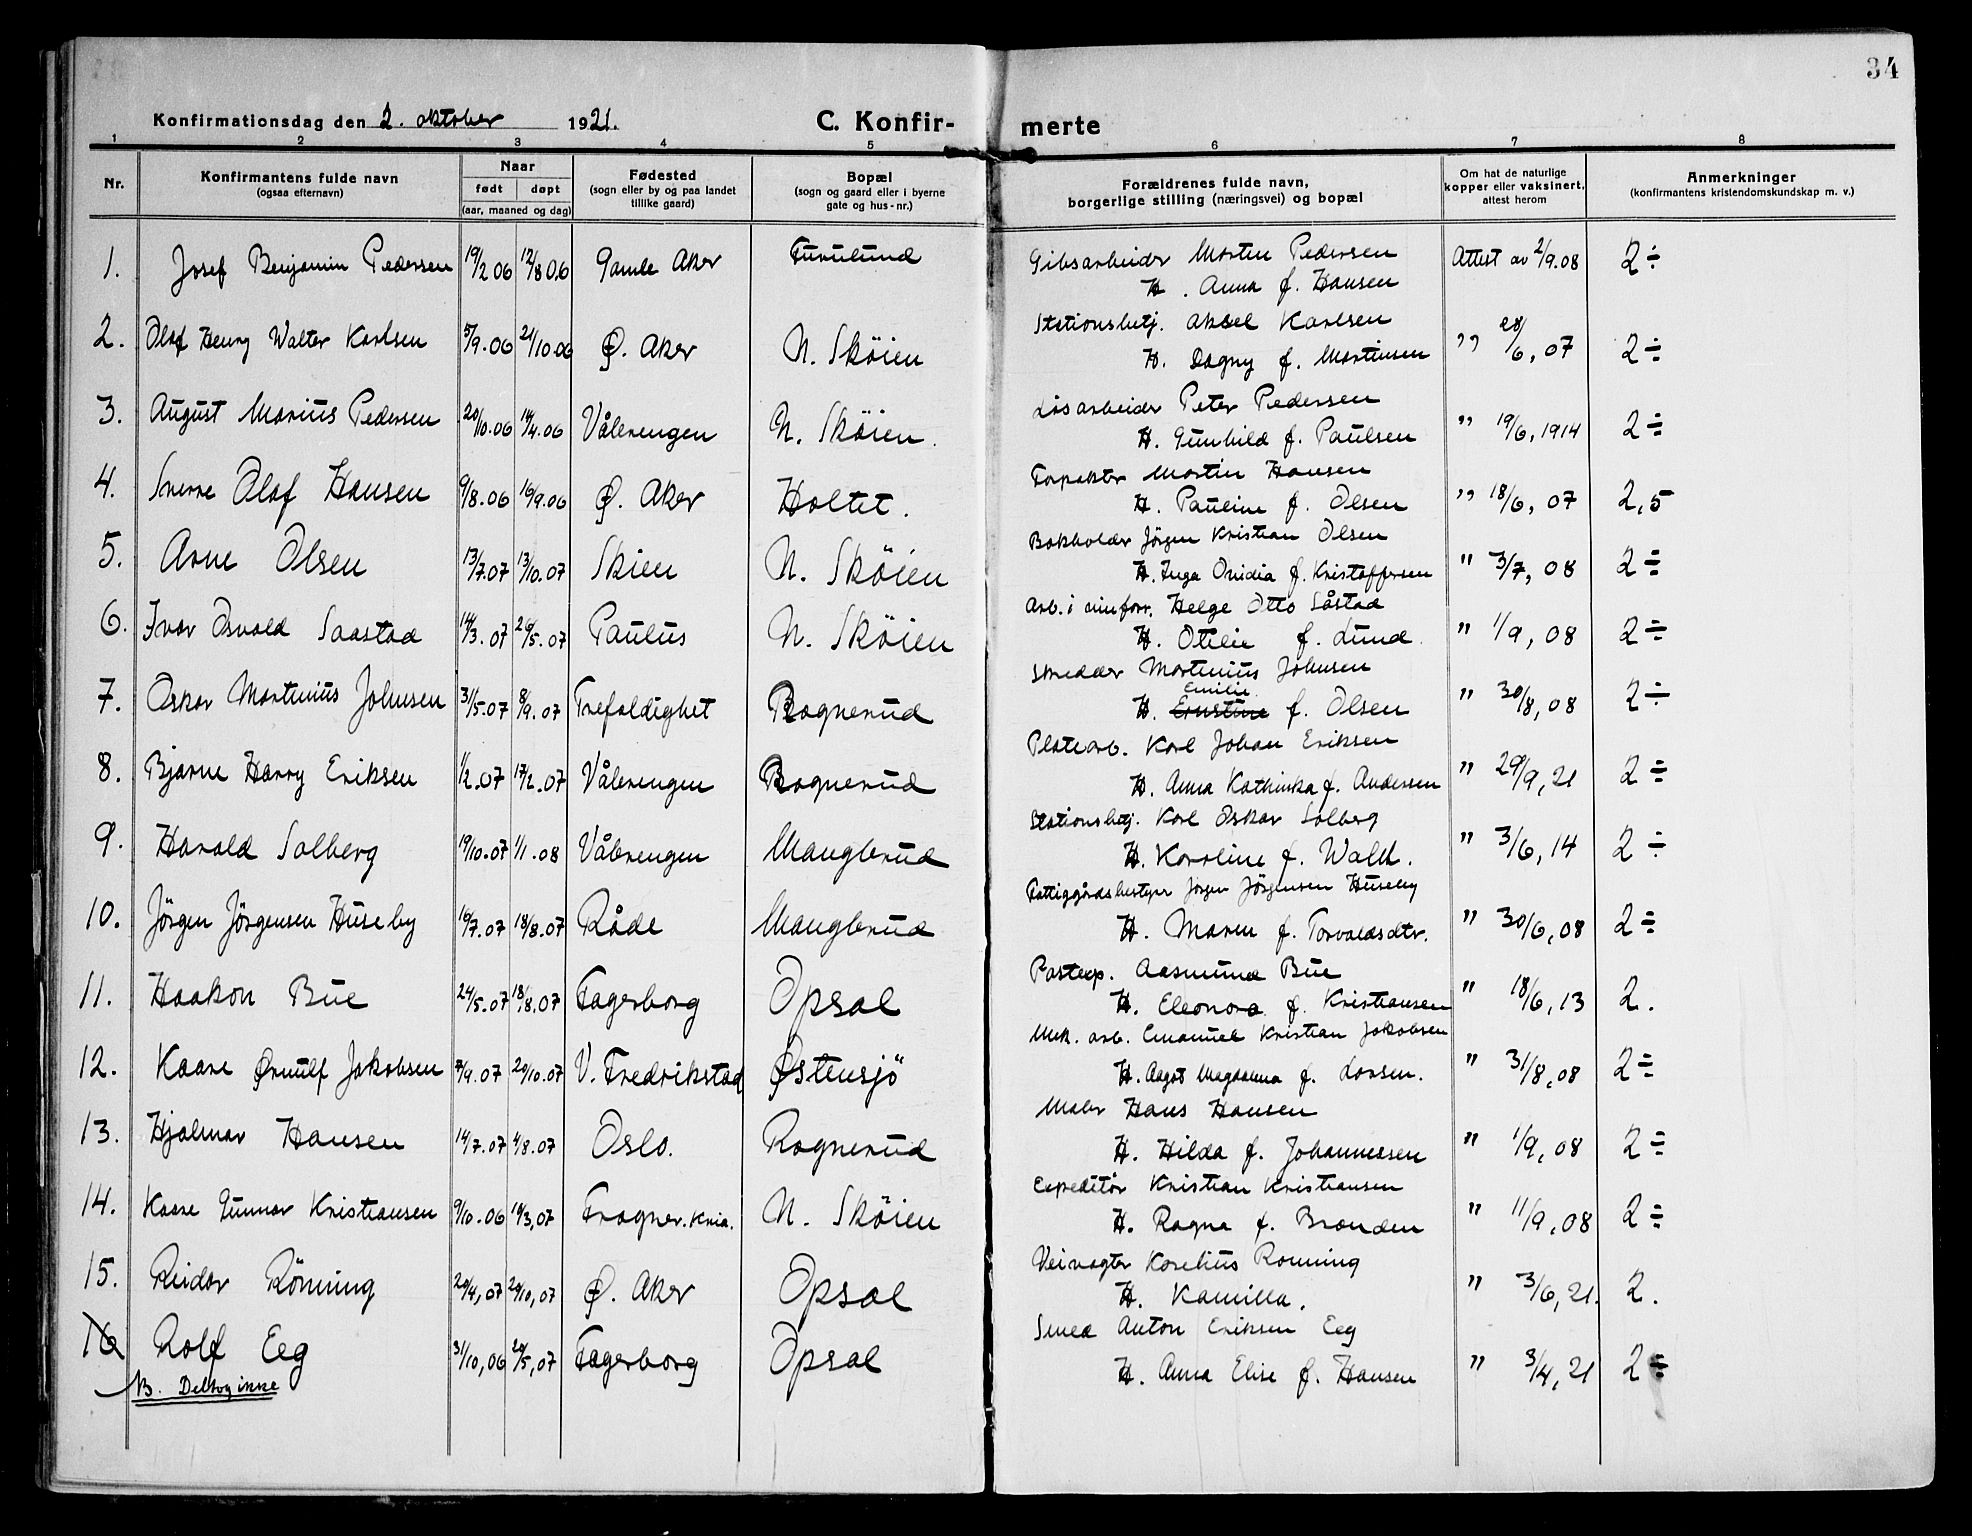 34
Konfirmationsdag den 2. oktober 1921.
C. Konfir- merte
1 2 3 4 5 6 7 8
Nr.
Konfirmantens fulde navn
(ogsaa efternavn)
Naar
født døpt
(aar, maaned og dag)
Fødested
(sogn eller by og paa landet
tillike gaard)
Bopæl
(sogn og gaard eller i byerne
gate og hus-nr.)
Forældrenes fulde navn,
borgerlige stilling (næringsvei) og bopæl
Om hat de naturlige
kopper eller vaksinert,
attest herom
Anmerkninger
(konfirmantens kristendomskundskap m. v.)
1. Josef Benjamin Pedersen 19/2 06 12/8 06 Gamle Aker Furulund Gibsarbeider Morten Pedersen Attest av 2/9.08 2÷
H. Anna f. Hansen
2. Olaf Henry Walter Karlsen 5/9.06 21/10.06 Ø. Aker N. Skøien Stationsbetj. Aksel Karlsen " 28/6, 07 2÷
H. Dagny f. Martinsen
3. August Marius Pedersen 20/10.06 14/4.06 Vålerengen N. Skøien. Løsarbeider Peter Pedersen " 19/6, 1914 2÷
H. Gunhild f. Paulsen
4. Sverre Olaf Hansen 9/8.06 16/9.06 Ø. Aker Holtet. Forpakter Martin Hansen " 18/6, 07 2,5
H. Pauline f. Olsen
5. Arne Olsen 13/7.07 13/10.07 Skien N. Skøien Bokholder Jørgen Kristian Olsen " 3/7, 08 2÷
H. Inga Ovidia f. Kristoffersen
6. Ivar Osvald Saastad 14/3.07 26/5.07 Paulus N. Skøien Arb. i vinforr. Helge Otto Såstad " 1/9, 08 2÷
H. Otelie f. Lund.
7. Oskar Martinius Johnsen 31/5.07 8/9.07 Trefoldighet Rognerud Skredder Martinius Johnsen " 30/8, 08 2÷
Emilie
H. Ernstine f. Olsen
8. Bjarne Harry Eriksen 1/2.07 17/2.07 Vålerengen Rognerud Platearb. Karl Johan Eriksen " 29/9, 21 2÷
H. Anna Kathinka f. Andersen
9. Harald Solberg 19/10.07 1/1.08 Vålerengen Manglerud Stationsbetj. Karl Oskar Solberg " 3/6, 14 2÷
H. Karoline f. Wald.
10. Jørgen Jørgensen Huseby 16/7.07 18/8.07 Råde Manglerud Fattiggårdsbestyrer Jørgen Jørgensen Huseby " 30/6, 08 2÷
H. Maren f. Torvaldsdtr.
11. Haakon Bue 24/5.07 18/8.07 Fagerborg Opsal Postexp. Aasmund Bue " 18/6, 13 2.
H. Eleonora f. Kristiansen
12. Kaare Ørnulf Jakobsen 7/9.07 20/10.07 V. Fredrikstad Østensjö Mek. arb. Emanuel Kristian Jakobsen " 31/8, 08 2÷
H. Aagot Magdalena f. Larsen.
13. Hjalmar Hansen 14/7.07 4/8.07 Oslo. Rognerud Maler Hans Hansen " 1/9, 08 2÷
H. Hilda f. Johannessen
14. Kaare Gunnar Kristiansen 9/10.06 14/3,07 Frogner. Kria. N. Skøien Expeditør Kristian Kristiansen " 11/9, 08 2÷
H. Ragna f. Branden
15. Reidar Rönning 20/4,07 20/10,07 Ø. Aker Opsal Veivogter Kornelius Ronning " 3/6, 21. 2.
H. Kamilla.
16 Rolf Eeg 31/10,06 20/5,07 Fagerborg Opsal Smed Anton Eriksen Eeg " 3/4, 21 2÷
NB. Deltog ikke H. Anna Elise f. Hansen